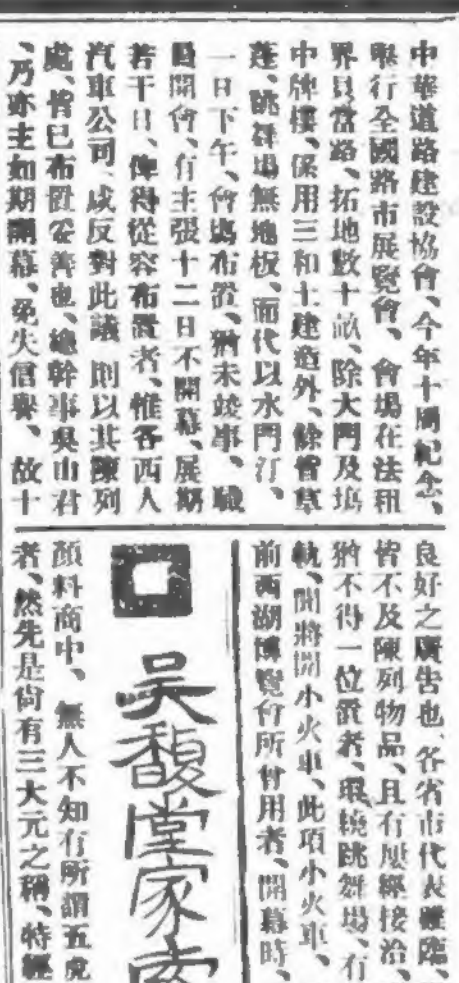 中華道路建設協會、今年十周紀念、
舉行全國路市展覽會、會場在法租
界貝當路、拓地數十畝、除大門及場
中牌樓、係用三和土建造外、餘皆草
蓬、跳舞場無地板、而代以水門汀、
一日下午、會場布置、猶未竣事、職
員開會、有主張十二日不開幕、展期
若干日、俾得從容布置者、惟各西人
汽車公司、咸反對此議則以其陳列
處、皆已布置妥善也、總幹事吳山君
、乃亦主如期開幕、免失信譽、故十
良好之廣告也、各省市代表雖臨、
皆不及陳列物品、且有屢經接洽、
猶不得一位置者、環繞跳舞場、有
軌、開將開小火車、此項小火車、
前西湖博覽會所曾用者、開幕時、
吳馥堂家
顏料商中、無人不知有所謂五虎
者、然先是尙有三大元之稱、特經